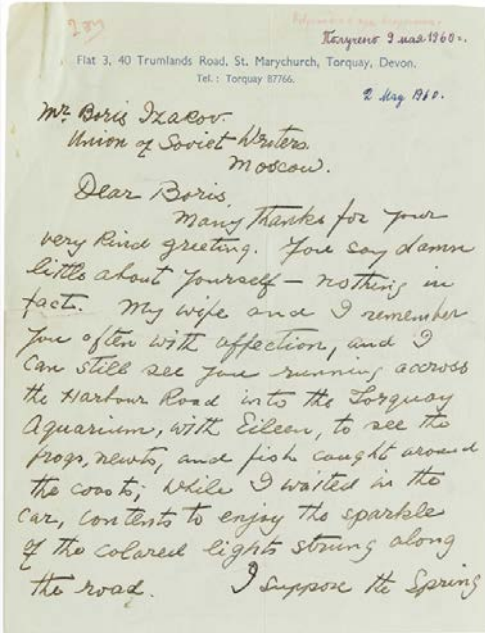 Получено 9 мая 1960 г.
Flat 3, 40 Trumlands Road, St. Marychurch, Torquay, Devon.
Tel.: Torquay 87766.
2 May 1960.
Mr. Boris Izakov.
Union of Soviet Writers
Moscow.
Dear Boris,
Many thanks for your
very kind greeting. You say damn
little about yourself – nothing in
fact. My wife and I remember
you often with affection, and I
can still see you running accross
the Harbour Road into the Torquay
Aquarium, with Eileen, to see the
frogs, newts, and fish caught around
the coasts; while I waited in the
car, contents to enjoy the sparkle
of the colared lights strung along
the road. I suppose the Spring